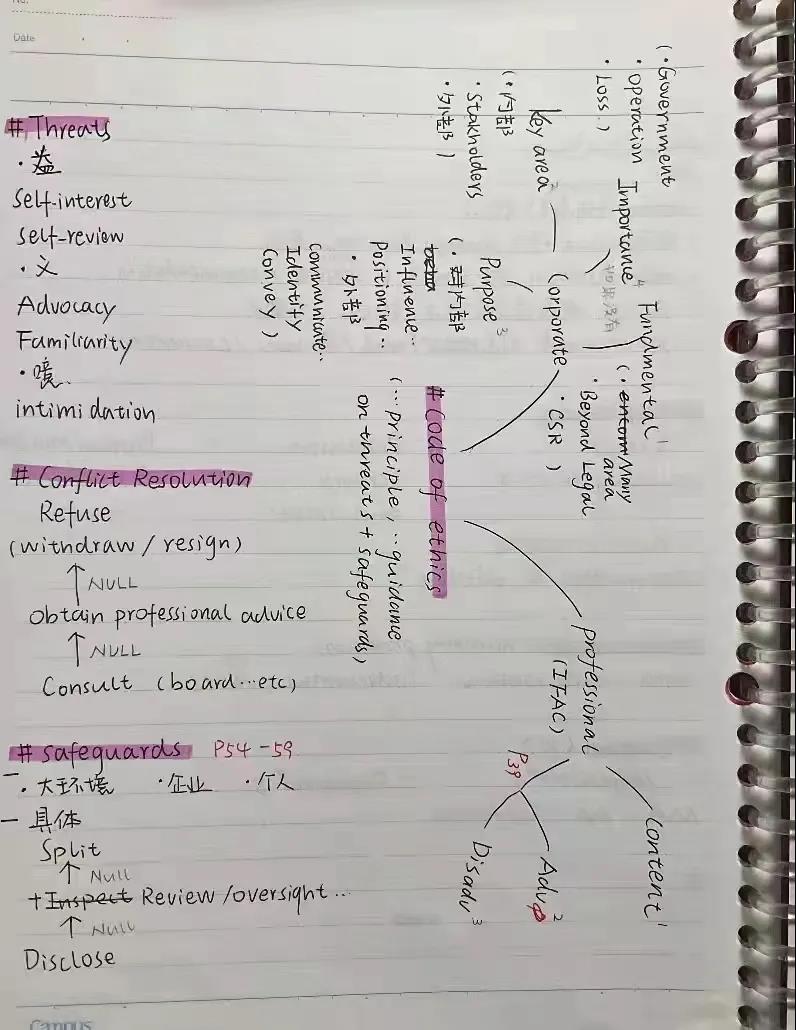 No.
Date
# Threats
· 益
Self-interest
Self-review
· 义
Advocacy
Familiarity
·
intimidation
# Conflict Resolution
Refuse
(withdraw / resign)
↑ NULL
Obtain professional advice
↑ NULL
Consult (board...etc)
# safeguards P54-59
- · 大环境 · 企业 · 个人
- 具体
Split
↑ NULL
+ Inspect Review /oversight...
↑ NULL
Disclose
Campus
# Code of ethics
(... principle, ... guidance
on threats + safeguards)
Corporate
Fundmental 1
(· Many
area
· Beyond Legal
· CSR )
如果没有
Importance 4
(· Government
· operation
· Loss. )
Key area 2
(· 内部
· Stakholders
· 外部 )
Purpose 3
(· 内部
Influence..
Positioning..
· 外部
communicate..
Identify
Convey )
professional
(IFAC)
Content 1
P39
Adv 2
Disadv 3